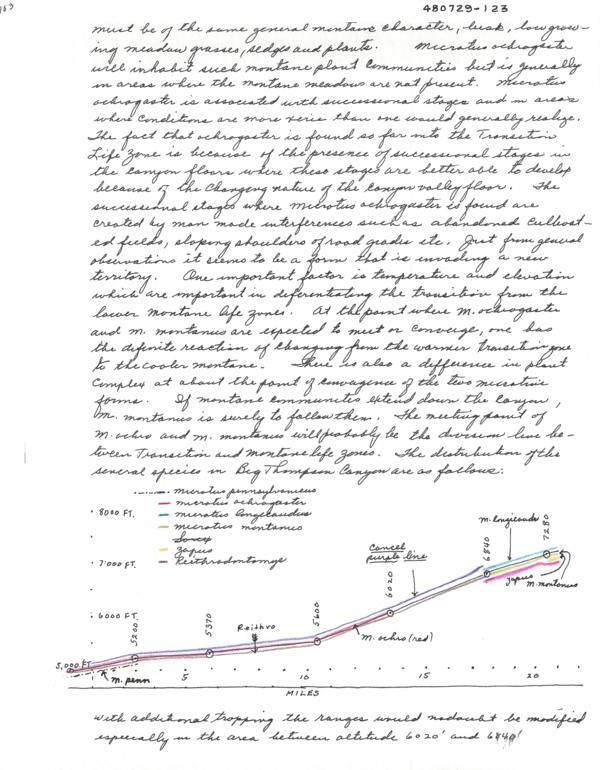 163
480729-123
must be of the same general montane character, lush, low grow-
ing meadow grasses, sedges and plants. Microtus ochrogaster
will inhabit such montane plant communities but is generally
in areas where the montane meadows are not present. Microtus
ochrogaster is associated with successional stages and in areas
where conditions are more xeric than one would generally realize.
The fact that ochrogaster is found so far into the Transition
Life Zone is because of the presence of successional stages in
the canyon floors where these stages are better able to develop
because of the changing nature of the canyon valley floor. The
successional stages where Microtus ochrogaster is found are
created by man made interferences such as abandoned cultivat-
ed fields, sloping shoulders of road grades etc. Just from general
observations it seems to be a form that is invading a new
territory. One important factor is temperature and elevation
which are important in deferentiating the transition from the
lower montane life zones. At the point where M. ochrogaster
and M. montanus are expected to meet or converge, one has
the definite reaction of changing from the warmer transition zone
to the cooler montane. There is also a difference in plant
complex at about the point of convergence of the two microtine
forms. If montane communities extend down the canyon,
M. montanus is surely to follow them. The meeting point of
M. ochro and M. montanus will probably be the division line be-
tween Transition and montane life zones. The distribution of the
several species in Big Thompson Canyon are as follows:
microtus pennsylvanicus
microtus ochrogaster
microtus longicaudus
microtus montanus
Sorex
Zapus
Reithrodontomys
8000 FT.
7000 FT.
6000 FT.
5,000 FT.
5200
5370
5600
6020
6840
7280
Reithro
Cancel
purple line
M. longicaudus
Zapus
M. montanus
M. ochro (red)
M. penn
5
10
15
20
MILES
With additional trapping the ranges would nodoubt be modified
especially in the area between altitude 6020' and 6840'